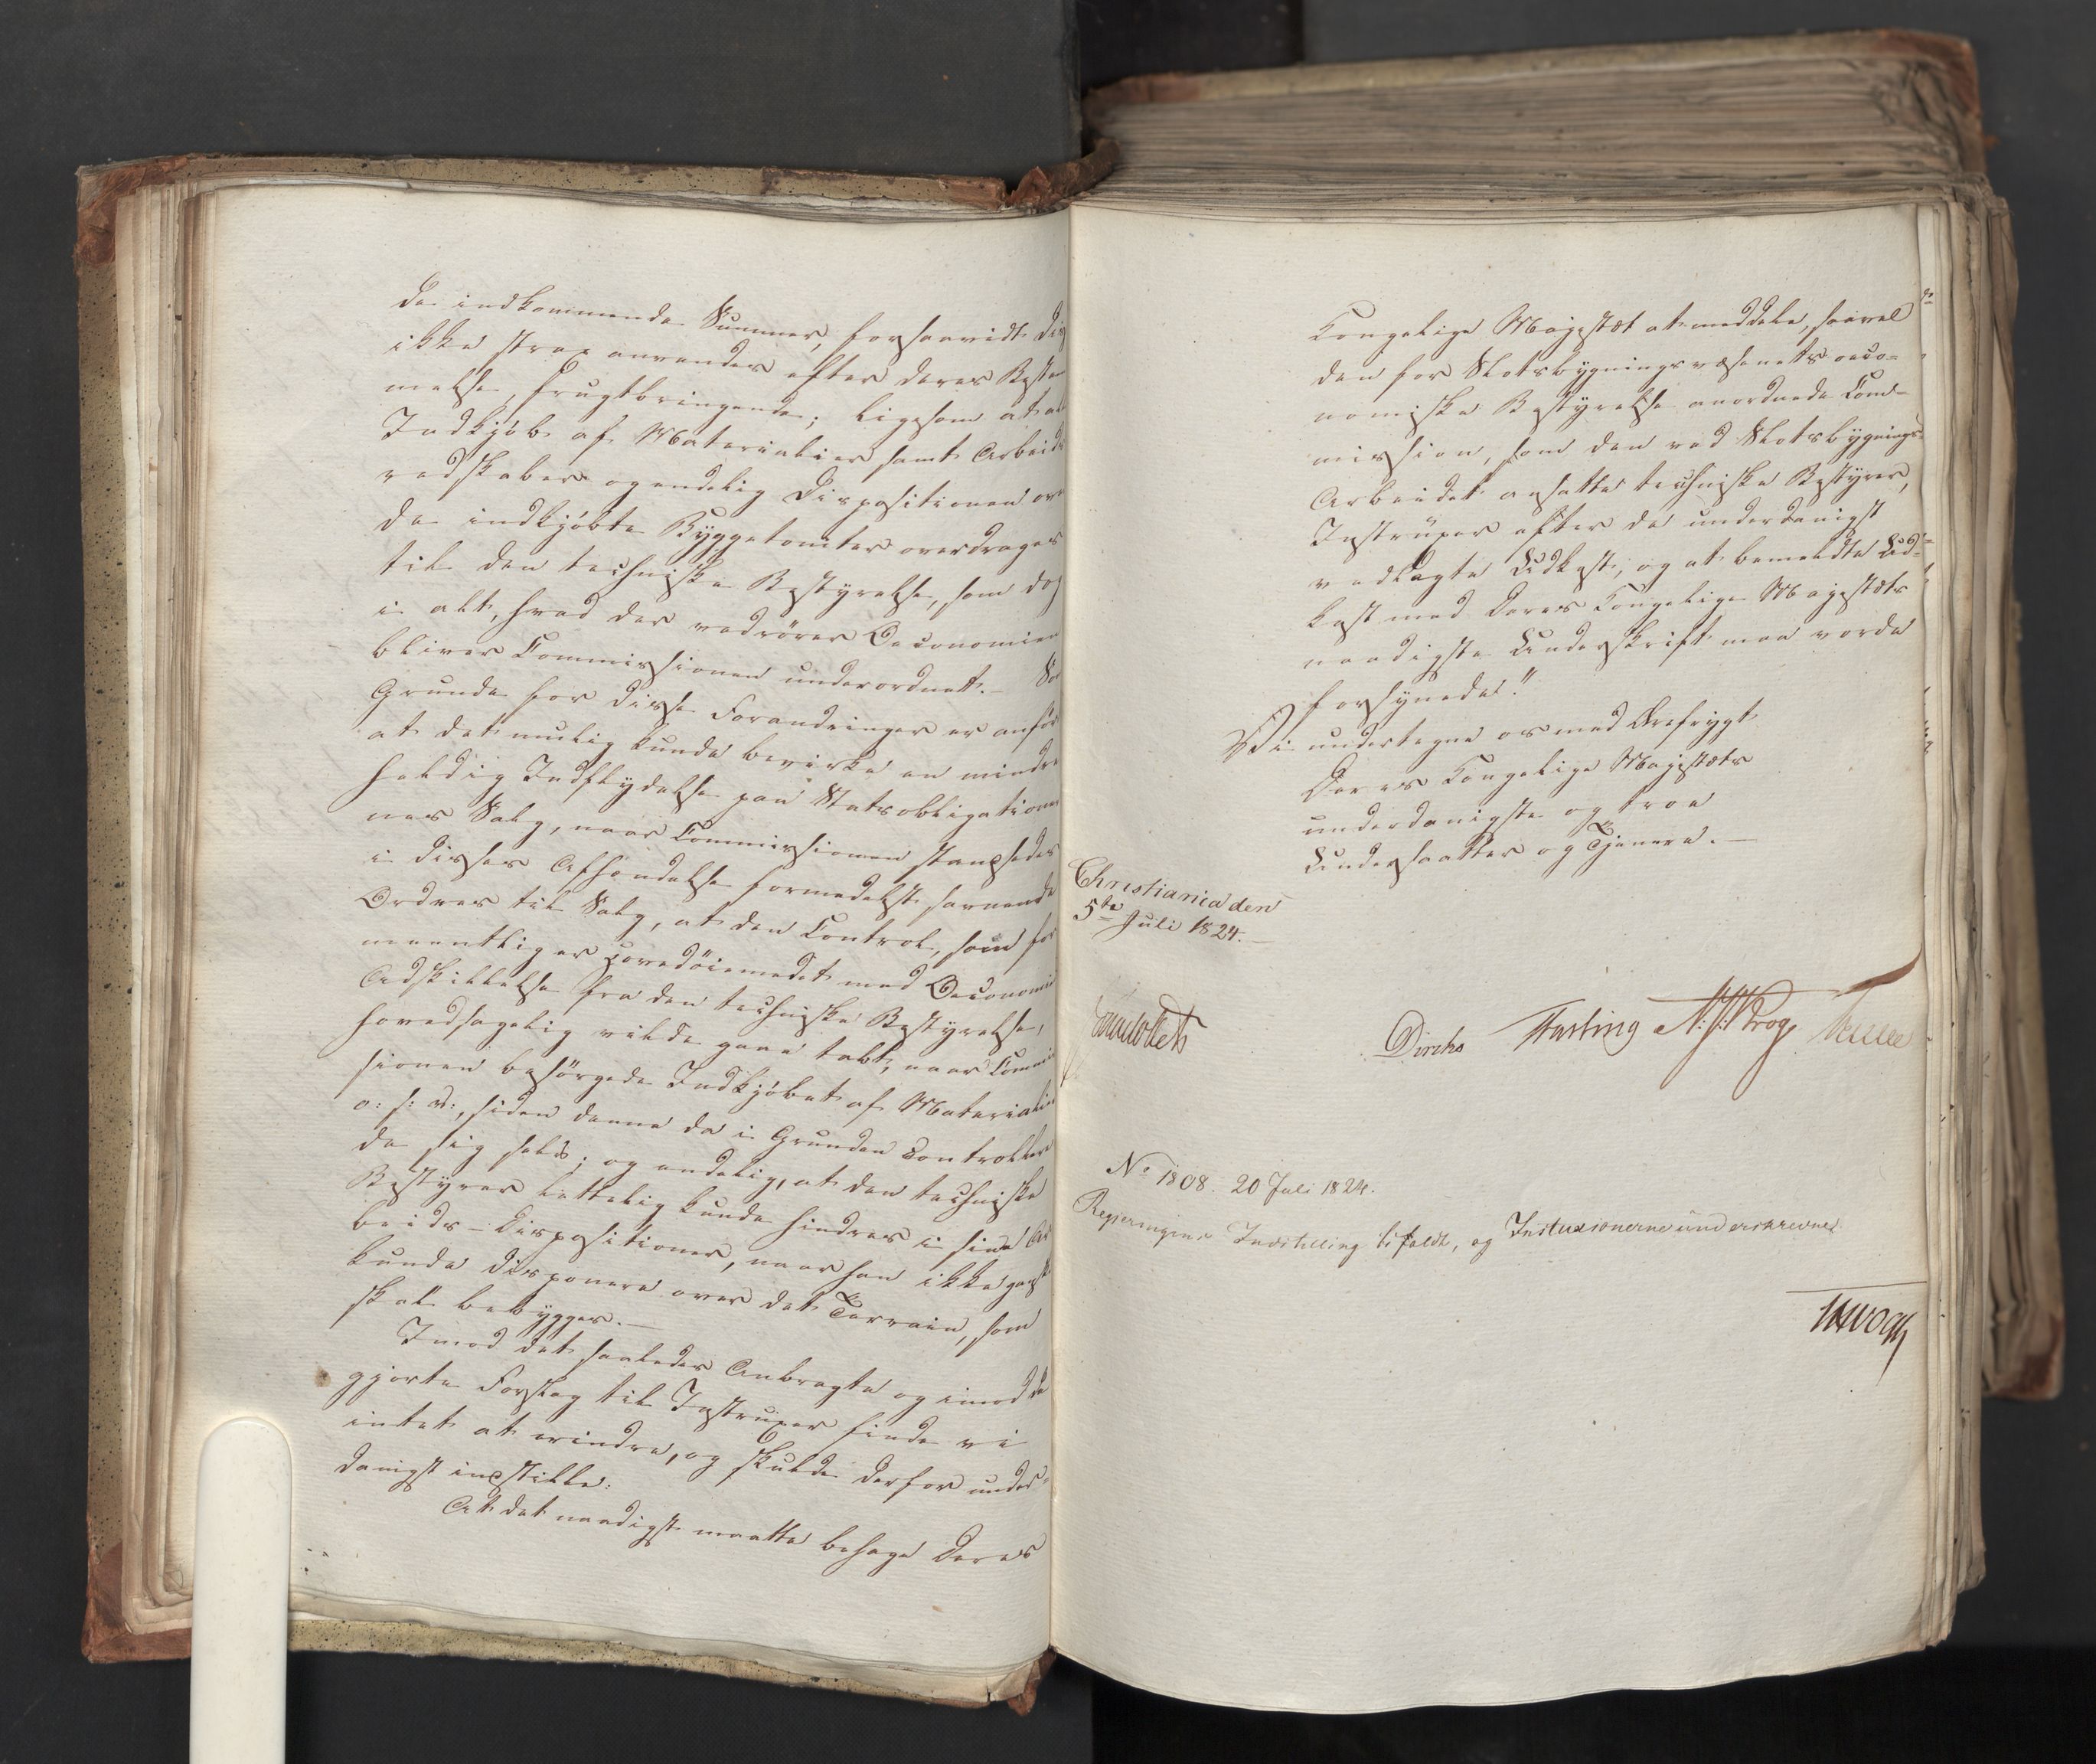 de indkommende Summer, forsaavidt dis
ikke strax anvendes efter deres Bestem
melse, frugtbringende; ligesom at al
Indkjøb af Materialier samt Arbeids
redskaber og endelig Dispositionen over
de indkjøbte Byggetomter overdrages
til den techniske Bestyrelse, som dog
i alt, hvad der vedrører Oeconomien
bliver Commissionen underordnet. – So
Grunde for disse Forandringer er anført
at det muelig kunde bevirke en mindre
heldig Indflydelse paa Statsobligationer
nes Salg, naar Commissionen standsedes
i disses Afhændelse formedelst savnende
Ordres til Salg, at den Control, som for
meentlig er Hovedøiemedet med Oeconomie
Adskillelse fra den techniske Bestyrelse,
hovedsagelig vilde gaae tabt, naar Commis
sionen besørgede Indkjøbet af Materialier
o: s: v:, siden denne da i Grunden controllere
de sig selv; og endelig, at den techniske
Bestyrer lettelig kunde hindres i sine Ar
beids-Dispositioner, naar han ikke ganske
kunde disponere over det Terrain, som
skal bebygges. –
Imod det saaledes Anbragte og imod de
gjorte Forslag til Instruxer finde vi
intet at erindre, og skulde derfor under-
danigst indstille:
At det naadigst maatte behage Deres
Kongelige Majestæt at meddele, saavel
den for Slotsbygningsvæsenets oeco-
nomiske Bestyrelse anordnede Com-
mission, som den ved Slotsbygnings-
Arbeidet ansatte techniske Bestyrer,
Instruxer efter de underdanigst
vedlagte Udkast, og at bemeldte Ud-
kast med Deres Kongelige Majestæts
naadigste Underskrift maa vorde
forsynede!"
Vi undertegne os med Ærefrygt
Deres Kongelige Majestæts
underdanigste og troe
Undersaatter og Tjenere. –
Christiania den
5te Juli 1824. –
Diriks Fasting N: J: Krog
No 1808. 20 Juli 1824.
Regjeringens Indstilling bifaldt, og Instuxionerne underskrevne.